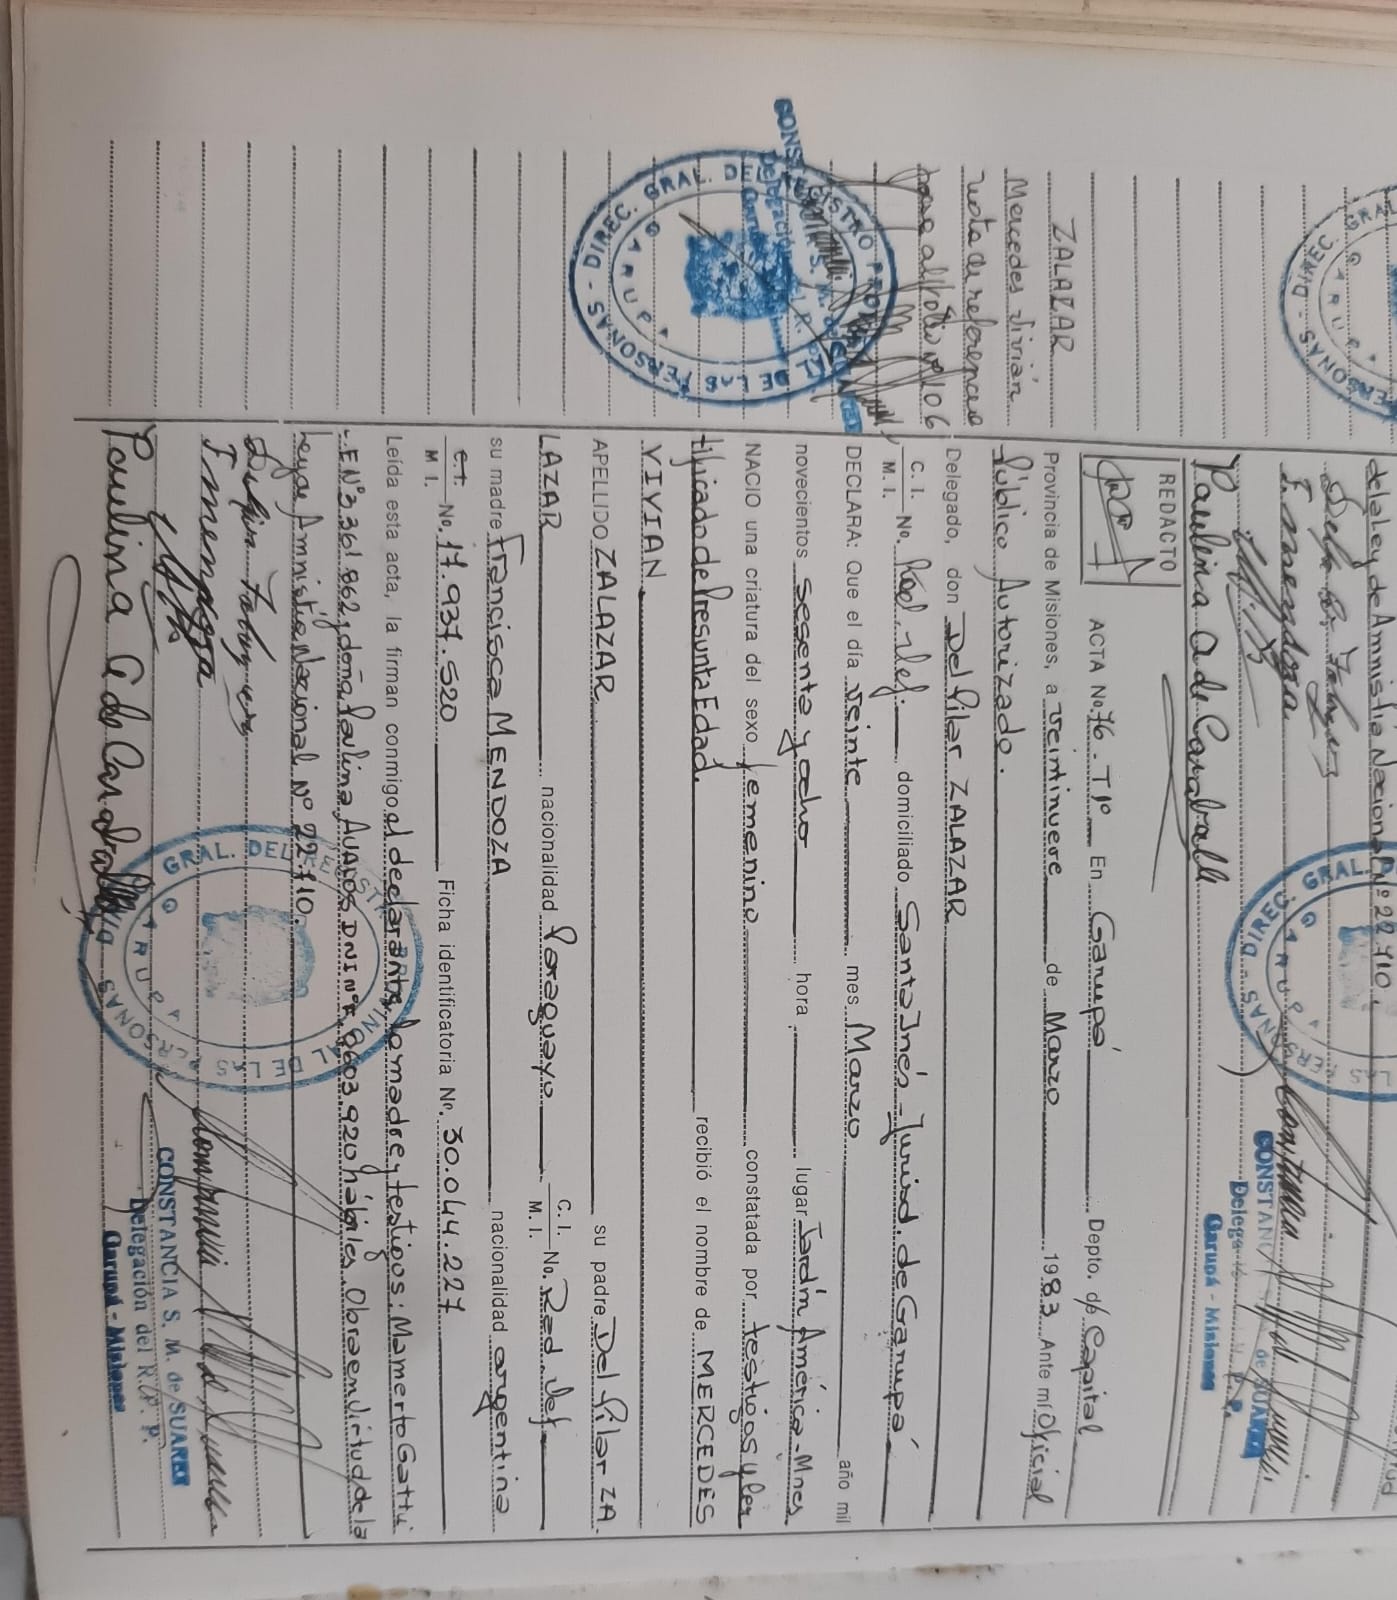 de la ley de Amnistía Nacional Nº 22.710.
I. Mendoza
Paulina A de Caraballo
CONSTANCIA S. M. de SUAREZ
Garupá - Misiones
DIREC. GRAL. DEL REGISTRO PROVINCIAL DE LAS PERSONAS
GARUPA
REDACTO
ZALAZAR
Mercedes Vivian
nota de referencia
pasa al folio nº 106
ACTA No. 76. Tº Iº En Garupá Depto. d/ Capital
Provincia de Misiones, a veintinueve de Marzo 1983 Ante mí Oficial
Público Autorizado.
Delegado, don Del Pilar ZALAZAR
C. I.
M. I. No. Rad. def. domiciliado Santa Inés - Jurisd. de Garupá
DECLARA: Que el día veinte mes Marzo año mil
novecientos sesenta y ocho hora lugar Jardín América - Mnes.
NACIO una criatura del sexo femenino constatada por testigos y cer
tificado de Presunta Edad. recibió el nombre de MERCEDES
VIVIAN
APELLIDO ZALAZAR su padre Del Pilar ZA
LAZAR nacionalidad Paraguayo C. I.
M. I. No. Rad. def.
su madre Francisca MENDOZA nacionalidad argentina
C. I.
M I. No. 17.937.520 Ficha identificatoria Nr. 30.044.227
Leída esta acta, la firman conmigo, el declarante, la madre y testigos: Mamerto Gattu
L.E Nº 3.361.862, doña Paulina AVALOS DNI nº 8603.920 hábiles. Obra en virtud de la
Ley de Amnistía Nacional Nº 22.710.
I. Mendoza
Paulina A de Caraballo
DIREC. GRAL. DEL REGISTRO PROVINCIAL DE LAS PERSONAS
GARUPA
CONSTANCIA S. M. de SUAREZ
Delegación del R. P. P.
Garupá - Misiones